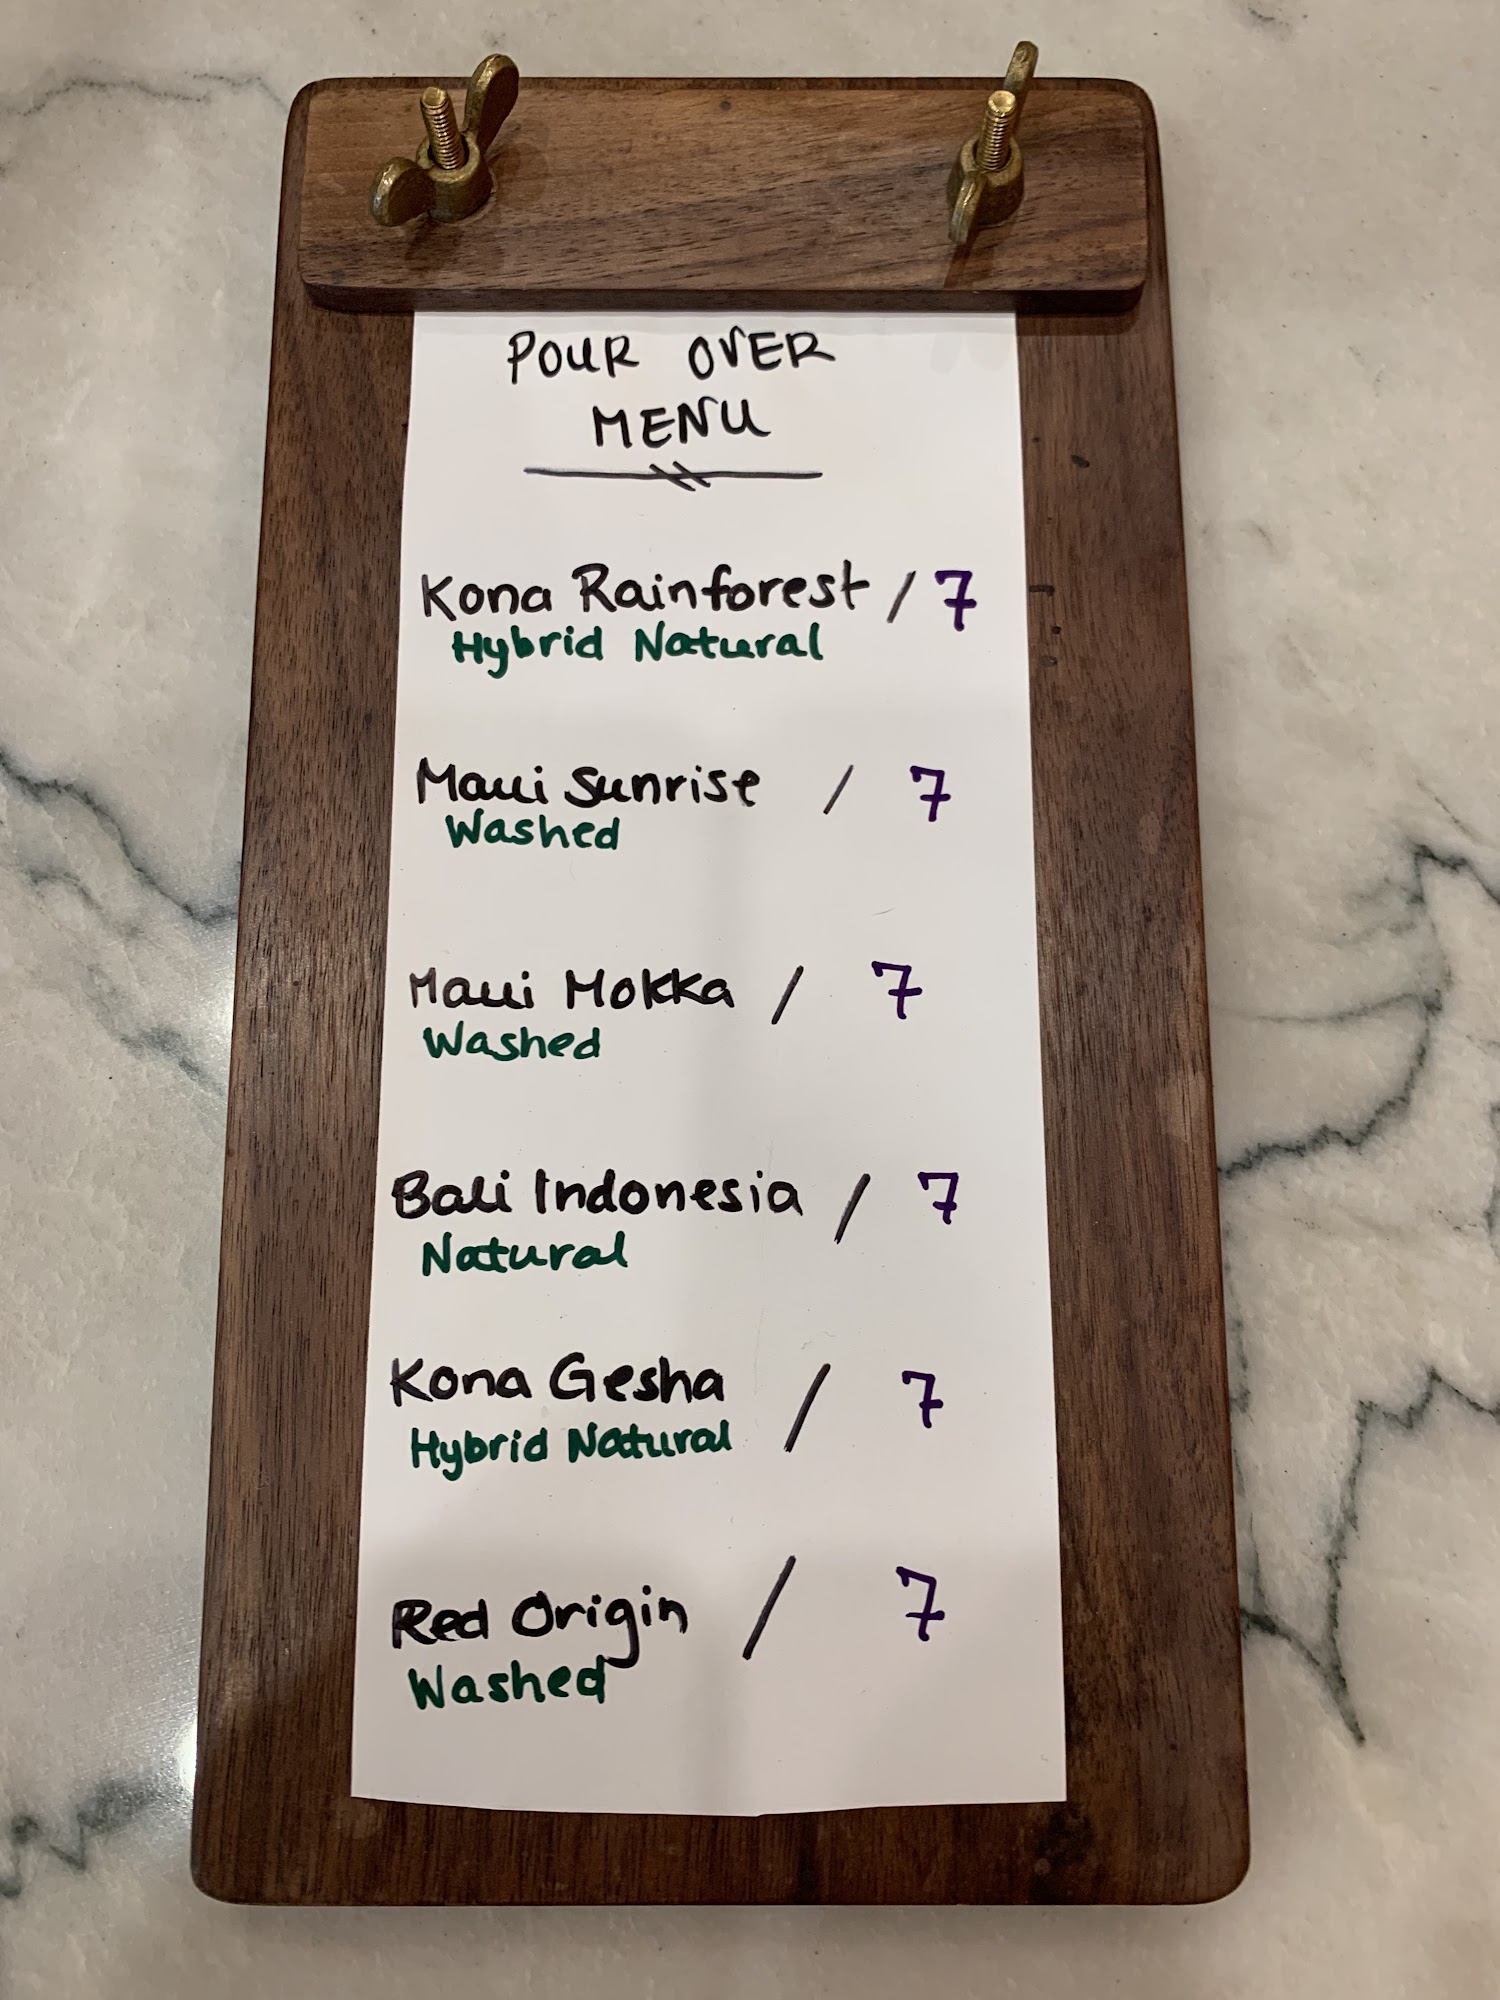 POUR OVER
MENU
Kona Rainforest / 7
Hybrid Natural
Maui Sunrise / 7
Washed
Maui Mokka / 7
Washed
Bali Indonesia / 7
Natural
Kona Gesha / 7
Hybrid Natural
Red Origin / 7
Washed